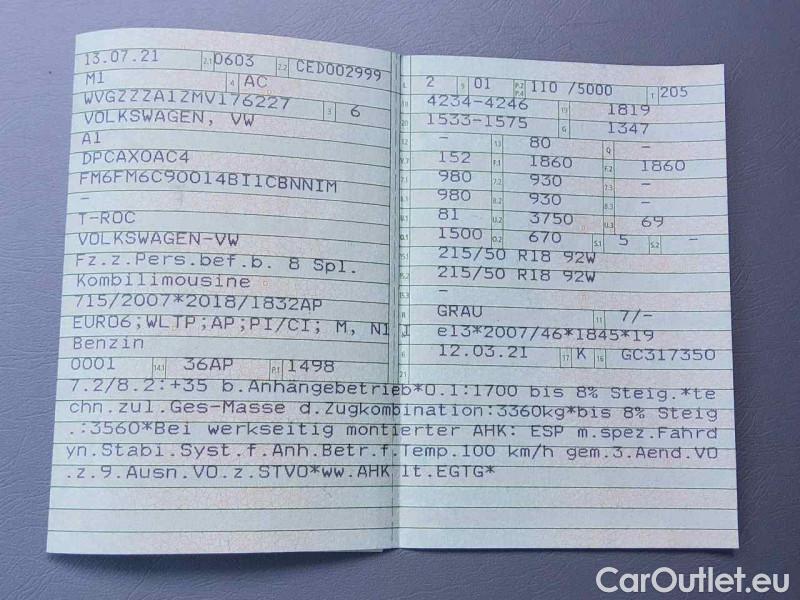 13.07.21 2.1 0603 2.2 CED002999
M1 4 AC
WVGZZZA1ZMV176227 3 6
VOLKSWAGEN, VW
A1
DPCAX0AC4
FM6FM6C90014BI1CBNNIM
-
T-ROC
VOLKSWAGEN-VW
Fz.z.Pers.bef.b. 8 Spl.
Kombilimousine
715/2007*2018/1832AP
EURO6;WLTP;AP;PI/CI; M, N1 I
Benzin
0001 14.1 36AP P.1 1498
L 2 9 01 P.2 P.4 110 /5000 T 205
18 4234-4246 19 1819
20 1533-1575 G 1347
12 - 13 80 Q -
V.7 152 F.1 1860 F.2 1860
7.1 980 7.2 930 7.3 -
8.1 980 8.2 930 8.3 -
U.1 81 U.2 3750 U.3 69
O.1 1500 O.2 670 S.1 5 S.2 -
15.1 215/50 R18 92W
15.2 215/50 R18 92W
15.3 -
R GRAU 11 7/-
K e13*2007/46*1845*19
6 12.03.21 17 K 16 GC317350
21
7.2/8.2:+35 b.Anhängebetrieb*O.1:1700 bis 8% Steig.*te
chn.zul.Ges-Masse d.Zugkombination:3360kg*bis 8% Steig
.:3560*Bei werkseitig montierter AHK: ESP m.spez.Fahrd
yn.Stabi.Syst.f.Anh.Betr.f.Temp.100 km/h gem.3.Aend.VO
.z.9.Ausn.VO.z.STVO*ww.AHK lt.EGTG*
CarOutlet.eu